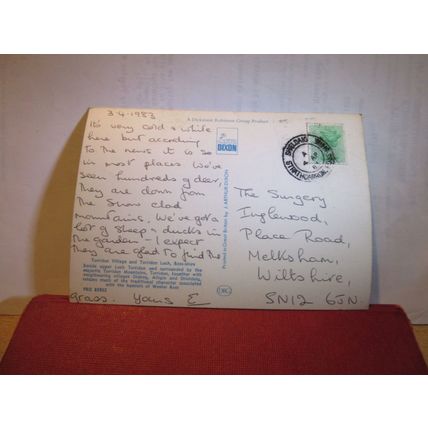 3-4-1983
A Dickinson Robinson Group Product
It's very cold & white
here but according
to the news it is so
in most places We've
seen hundreds of deer,
they are down from
the Snow clad
mountains. We've got a
lot of sheep & ducks in
the garden - I expect
they are glad to find the
grass. Yours E
DIXON
Printed in Great Britain by J. ARTHUR DIXON
Torridon Village and Torridon Loch, Ross-shire
Beside upper Loch Torridon and surrounded by the
majestic Torridon Mountains, Torridon, together with
neighbouring villages Diabaig, Alligin and Shieldaig,
retains much of the traditional character associated
with the hamlets of Wester Ross
The Surgery
Inglewood,
Place Road,
Melksham,
Wiltshire,
SN12 6JN.
SHIELDAIG
STRATHCARRON